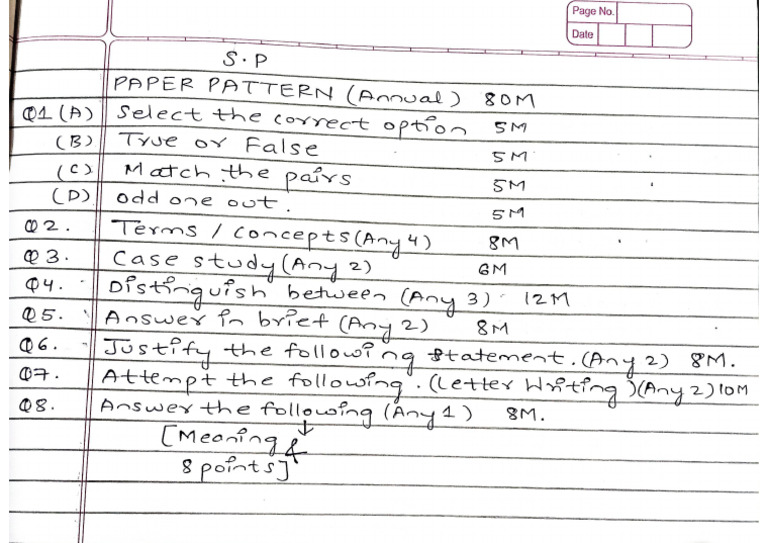 Page No.
Date
S.P
PAPER PATTERN (Annual) 80M
Q1 (A) Select the correct option 5M
(B) True or False 5M
(C) Match the pairs 5M
(D) odd one out. 5M
Q2. Terms / Concepts (Any 4) 8M
Q3. Case study (Any 2) 6M
Q4. Distinguish between (Any 3) 12M
Q5. Answer in brief (Any 2) 8M
Q6. Justify the following statement. (Any 2) 8M.
Q7. Attempt the following. (Letter Writing) (Any 2) 10M
Q8. Answer the following (Any 1) 8M.
[Meaning &
8 points]